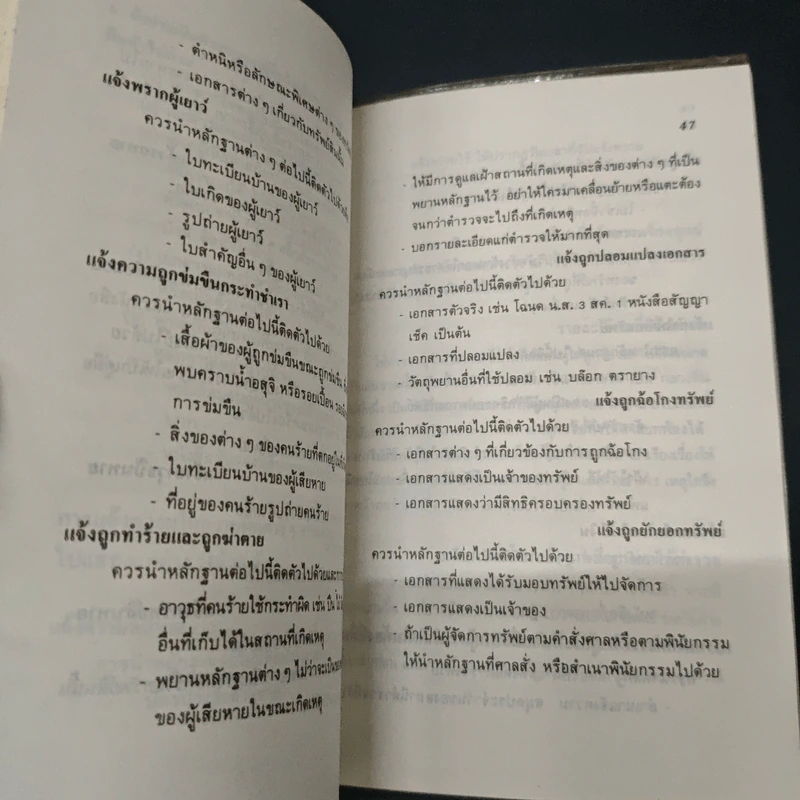 - ตำหนิหรือลักษณะพิเศษต่าง ๆ
- เอกสารต่าง ๆ เกี่ยวกับทรัพย์สินนั้น
แจ้งพรากผู้เยาว์
ควรนำหลักฐานต่าง ๆ ต่อไปนี้ติดตัวไปด้วย
- ใบทะเบียนบ้านของผู้เยาว์
- ใบเกิดของผู้เยาว์
- รูปถ่ายผู้เยาว์
- ใบสำคัญอื่น ๆ ของผู้เยาว์
แจ้งความถูกข่มขืนกระทำชำเรา
ควรนำหลักฐานต่อไปนี้ติดตัวไปด้วย
- เสื้อผ้าของผู้ถูกข่มขืนขณะถูกข่มขืน
พบคราบน้ำอสุจิ หรือรอยเปื้อน
การข่มขืน
- สิ่งของต่าง ๆ ของคนร้ายที่ตกอยู่
- ใบทะเบียนบ้านของผู้เสียหาย
- ที่อยู่ของคนร้ายรูปถ่ายคนร้าย
แจ้งถูกทำร้ายและถูกฆ่าตาย
ควรนำหลักฐานต่อไปนี้ติดตัวไปด้วย
- อาวุธที่คนร้ายใช้กระทำผิด เช่น ปืน
อื่นที่เก็บได้ในสถานที่เกิดเหตุ
- พยานหลักฐานต่าง ๆ ไม่ว่าจะเป็น
ของผู้เสียหายในขณะเกิดเหตุ
47
- ให้มีการดูแลเฝ้าสถานที่เกิดเหตุและสิ่งของต่าง ๆ ที่เป็น
พยานหลักฐานไว้ อย่าให้ใครมาเคลื่อนย้ายหรือแตะต้อง
จนกว่าตำรวจจะไปถึงที่เกิดเหตุ
- บอกรายละเอียดแก่ตำรวจให้มากที่สุด
แจ้งถูกปลอมแปลงเอกสาร
ควรนำหลักฐานต่อไปนี้ติดตัวไปด้วย
- เอกสารตัวจริง เช่น โฉนด น.ส. 3 สค. 1 หนังสือสัญญา
เช็ค เป็นต้น
- เอกสารที่ปลอมแปลง
- วัตถุพยานอื่นที่ใช้ปลอม เช่น บล๊อก ตรายาง
แจ้งถูกฉ้อโกงทรัพย์
ควรนำหลักฐานต่อไปนี้ติดตัวไปด้วย
- เอกสารต่าง ๆ ที่เกี่ยวข้องกับการถูกฉ้อโกง
- เอกสารแสดงเป็นเจ้าของทรัพย์
- เอกสารแสดงว่ามีสิทธิครอบครองทรัพย์
แจ้งถูกยักยอกทรัพย์
ควรนำหลักฐานต่อไปนี้ติดตัวไปด้วย
- เอกสารที่แสดงได้รับมอบทรัพย์ให้ไปจัดการ
- เอกสารแสดงเป็นเจ้าของ
- ถ้าเป็นผู้จัดการทรัพย์ตามคำสั่งศาลหรือตามพินัยกรรม
ให้นำหลักฐานที่ศาลสั่ง หรือสำเนาพินัยกรรมไปด้วย